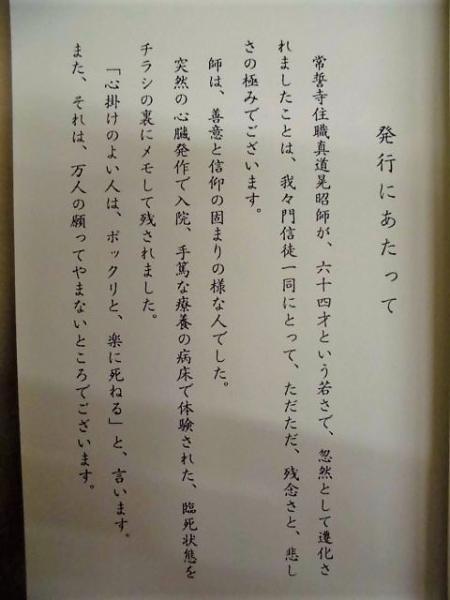 発行にあたって
常誓寺住職真道晃昭師が、六十四才という若さで、忽然として遷化さ
れましたことは、我々門信徒一同にとって、ただただ、残念さと、悲し
さの極みでございます。
師は、善意と信仰の固まりの様な人でした。
突然の心臓発作で入院、手篤な療養の病床で体験された、臨死状態を
チラシの裏にメモして残されました。
「心掛けのよい人は、ポックリと、楽に死ねる」と、言います。
また、それは、万人の願ってやまないところでございます。